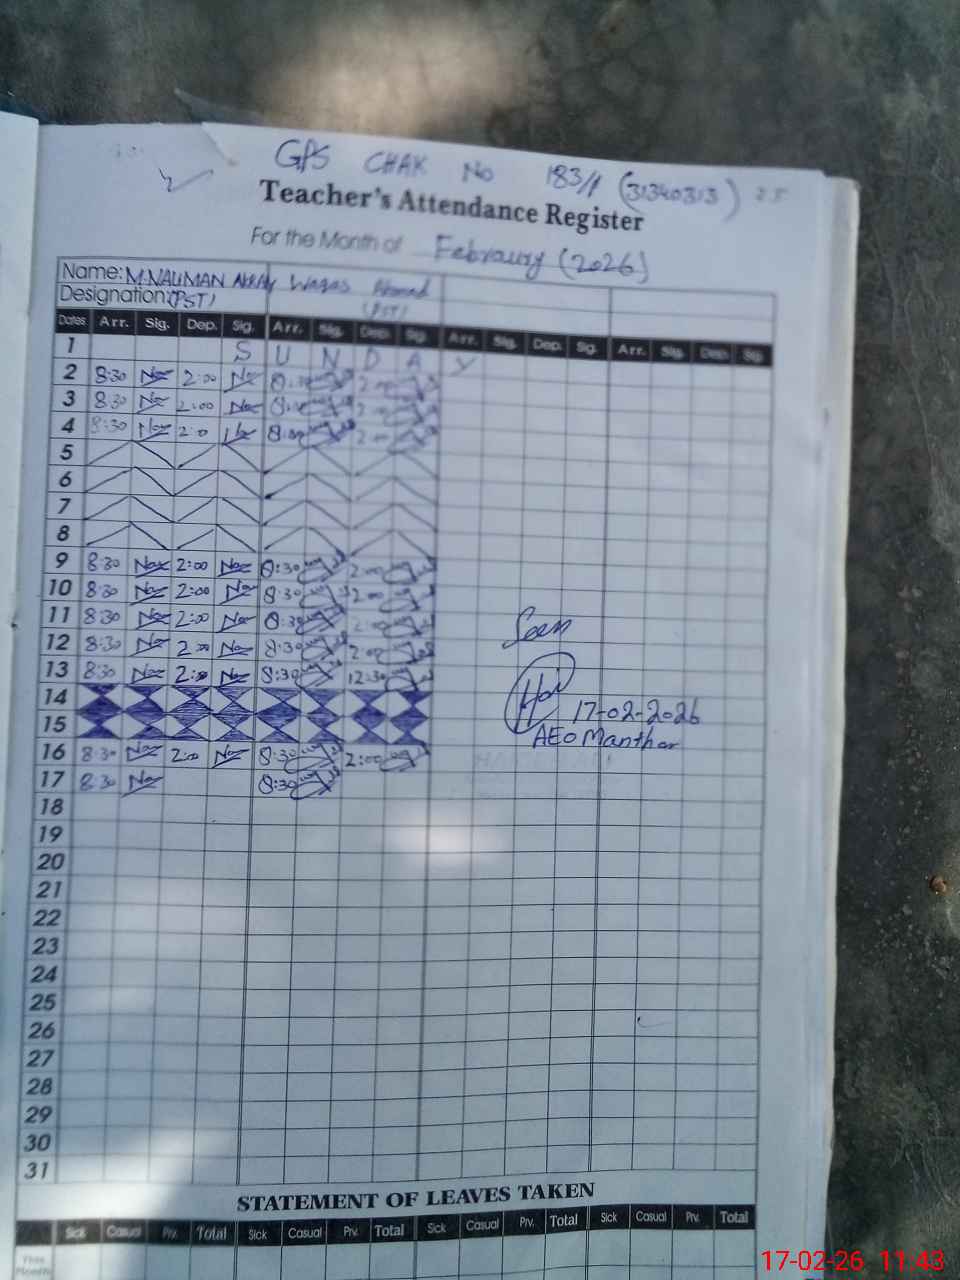 GPS CHAK No 183/1 (31340313)
Teacher's Attendance Register
For the Month of Febraury (2026)
Name: M.NAUMAN AKRAM Waqas Ahmad
Designation: (PST) (PST)
Dates Arr. Sig. Dep. Sig. Arr. Sig. Dep. Sig. Arr. Sig. Dep. Sig. Arr. Sig. Dep. Sig.
1 S U N D A Y
2 8:30 2:00 8:30 2:00
3 8:30 2:00 8:30 2:00
4 8:30 2:0 8:30 2:00
5
6
7
8
9 8:30 2:00 8:30 2:00
10 8:30 2:00 8:30 2:00
11 8:30 2:00 8:30 2:00
Seen
12 8:30 2:00 8:30 2:00
13 8:30 2:00 8:30 12:30
14
17-02-2026
15
AEO Manthar
16 8:30 2:00 8:30 2:00
17 8:30 8:30
18
19
20
21
22
23
24
25
26
27
28
29
30
31
STATEMENT OF LEAVES TAKEN
Sick Casual Prv. Total Sick Casual Prv. Total Sick Casual Prv. Total Sick Casual Prv. Total
This Month
17-02-26 11:43